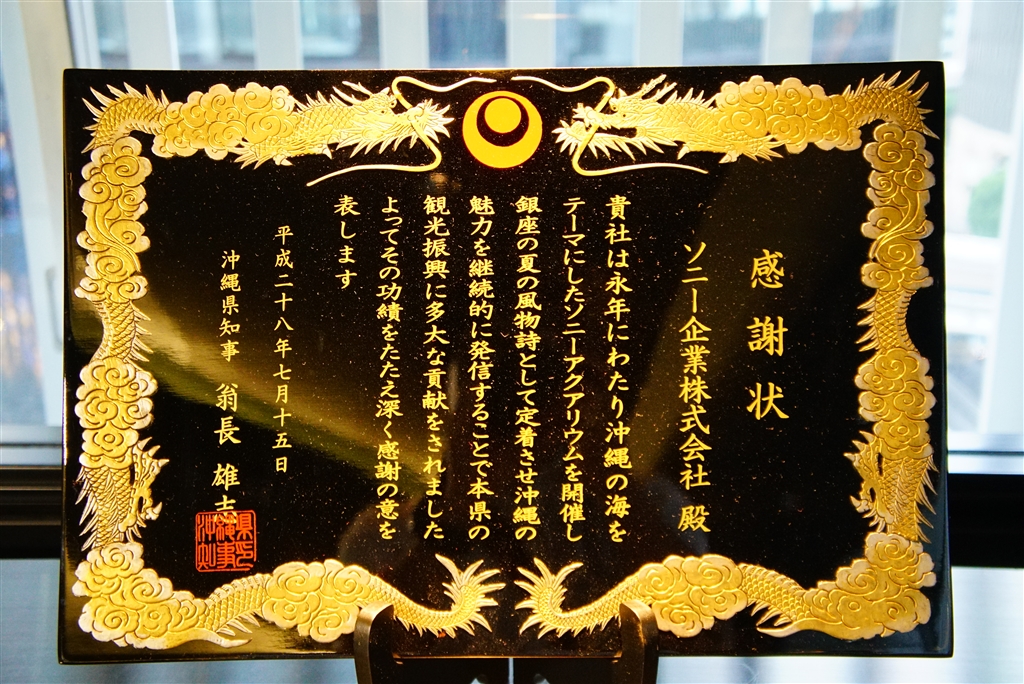 感謝状
ソニー企業株式会社 殿
貴社は永年にわたり沖縄の海を
テーマにしたソニーアクアリウムを開催し
銀座の夏の風物詩として定着させ沖縄の
魅力を継続的に発信することで本県の
観光振興に多大な貢献をされました
よってその功績をたたえ深く感謝の意を
表します
平成二十八年七月十五日
沖縄県知事 翁長 雄志